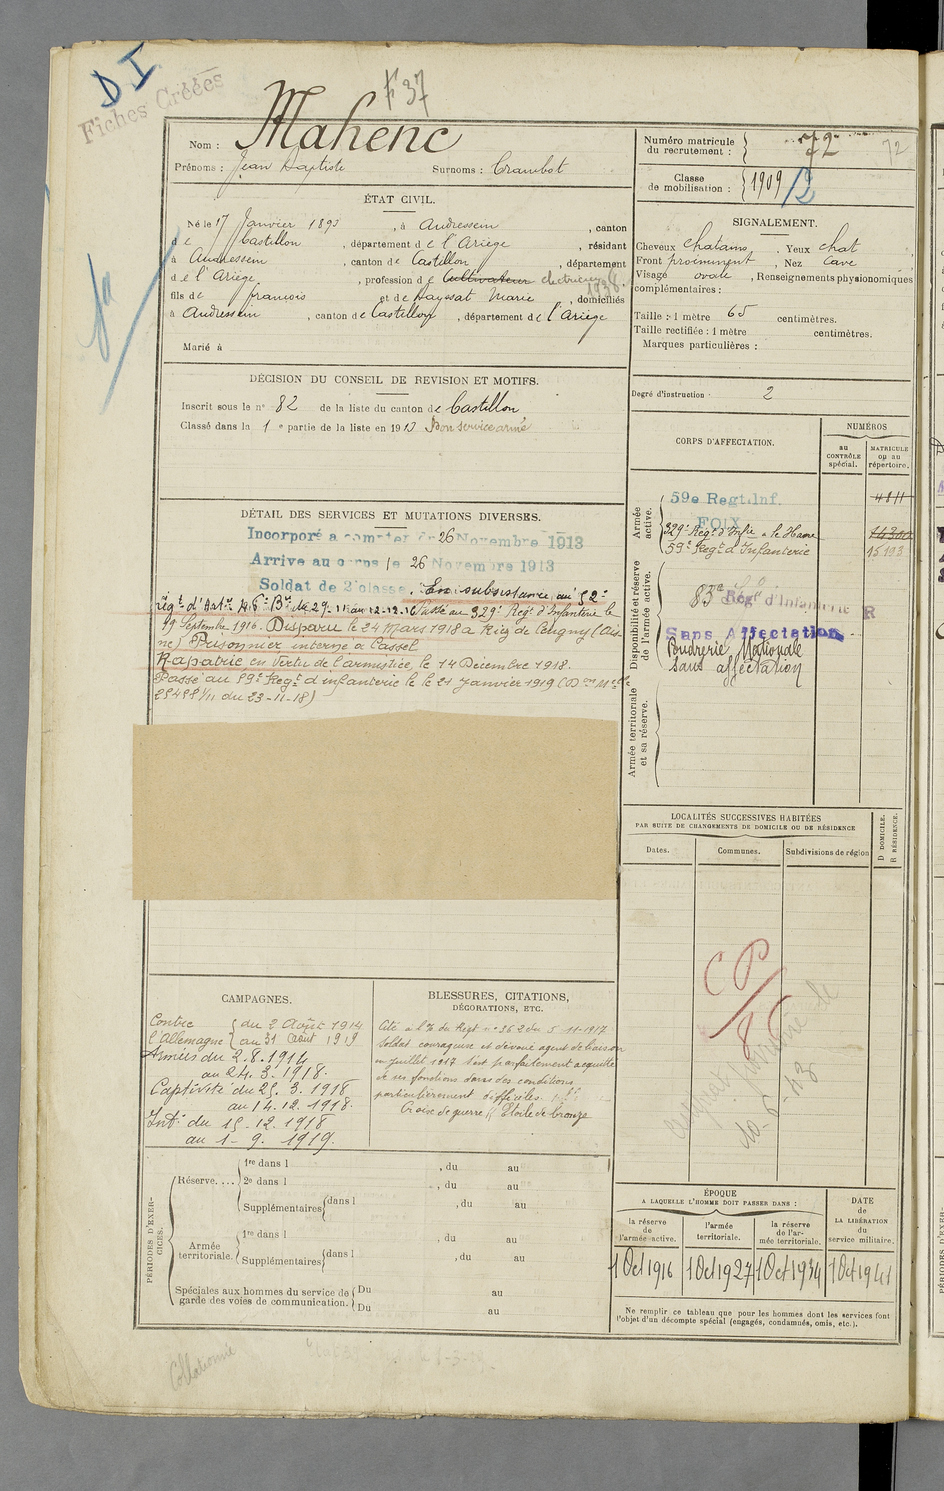 D I
Fiches Créées
F 37
Nom : Mahenc
Prénoms : Jean Baptiste Surnoms : Crambot
Numéro matricule du recrutement : 72 72
Classe de mobilisation : 1909 12
ÉTAT CIVIL.
Né le 17 Janvier 1893, à Audressein, canton
de Castillon, département de l'Ariège, résidant
à Audressein, canton de Castillon, département
de l'Ariège, profession de Cultivateur electricien 1938.
fils de françois et de Hayssat Marie, domiciliés
à Audressein, canton de Castillon, département de l'Ariège
Marié à
SIGNALEMENT.
Cheveux chatains. Yeux chat
Front proeminent, Nez Cave
Visage ovale, Renseignements physionomiques
complémentaires :
Taille : 1 mètre 65 centimètres.
Taille rectifiée : 1 mètre centimètres.
Marques particulières :
Degré d'instruction : 2
DÉCISION DU CONSEIL DE REVISION ET MOTIFS.
Inscrit sous le n° 82 de la liste du canton de Castillon
Classé dans la 1e partie de la liste en 1913 Bon service armé
DÉTAIL DES SERVICES ET MUTATIONS DIVERSES.
Incorporé a compter du 26 Novembre 1913
Arrive au corps le 26 Novembre 1913
Soldat de 2e classe. En subsistance au 52e
régt d'Artie 46e Bie de 29.11 au 12.12.16 Passé au 329e Regt d'Infanterie le
19 Septembre 1916. Disparu le 24 Mars 1918 a
Prisonnier interné à Cassel
Rapatrié en vertu de l'armistice, le 14 Décembre 1918.
Passé au 59e Regt d'infanterie le 21 Janvier 1919
25488 1/11 du 23-11-18)
CORPS D'AFFECTATION.
NUMÉROS
au CONTRÔLE spécial.
MATRICULE ou au répertoire.
Armée active.
59e Regt. Inf.
FOIX
4811
329e Regt d'Infie le Havre 14300
59e Regt d'Infanterie 15193
Disponibilité et réserve de l'armée active.
83e Rég d'Infanterie R
Sans Affectation
Poudrerie Nationale
Sans affectation
Armée territoriale et sa réserve.
LOCALITÉS SUCCESSIVES HABITÉES
PAR SUITE DE CHANGEMENTS DE DOMICILE OU DE RÉSIDENCE
Dates. Communes. Subdivisions de région
D DOMICILE. R RÉSIDENCE.
CP
CAMPAGNES.
Contre l'Allemagne du 2 Août 1914
au 31 Août 1919
Armées du 2.8.1914
au 24.3.1918.
Captivité du 25.3.1918
au 14.12.1918.
Intr du 15.12.1918
au 1-9.1919.
BLESSURES, CITATIONS,
DÉCORATIONS, ETC.
Cité a l'O du Regt n° 362 du 5-11-1917
Soldat courageux et dévoué agent de liaison
en juillet 1917 s'est parfaitement acquitté
de ses fonctions dans des conditions
particulièrement difficiles.
Croix de guerre Etoile de bronze
PÉRIODES D'EXERCICES.
Réserve....
1re dans l , du au
2e dans l , du au
Supplémentaires dans l , du au
Armée territoriale.
1re dans l , du au
Supplémentaires dans l , du au
Spéciales aux hommes du service de garde des voies de communication. Du au
Du au
ÉPOQUE
A LAQUELLE L'HOMME DOIT PASSER DANS :
la réserve de l'armée active.
l'armée territoriale.
la réserve de l'armée territoriale.
DATE de LA LIBÉRATION du service militaire.
1 Oct 1916 1 Oct 1927 1 Oct 1934 1 Oct 1941
Ne remplir ce tableau que pour les hommes dont les services font
l'objet d'un décompte spécial (engagés, condamnés, omis, etc.).
Collationné